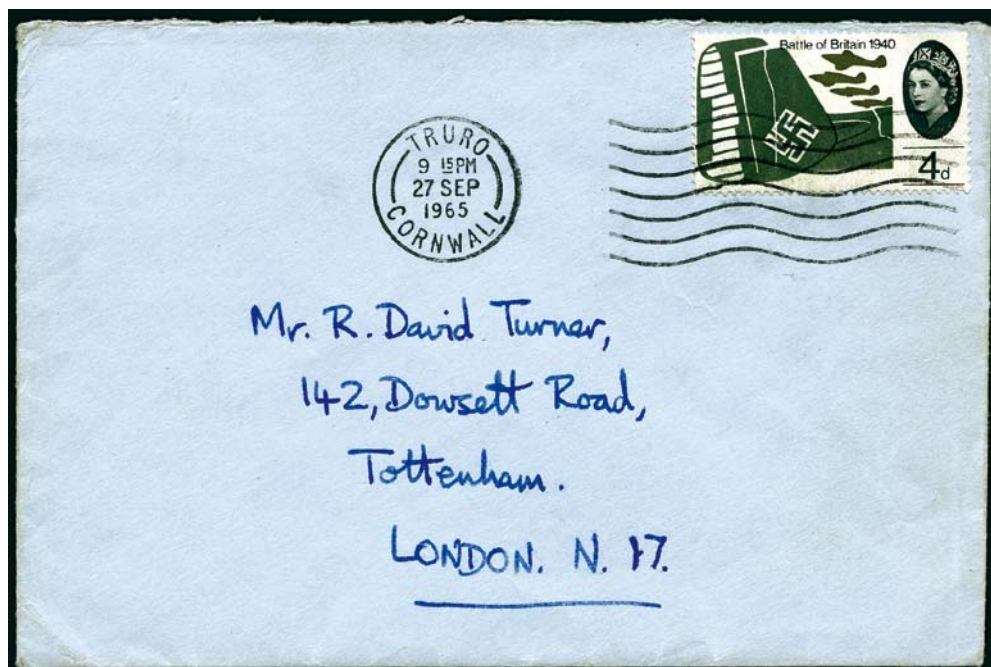 Battle of Britain 1940
4d
TRURO
9 15PM
27 SEP
1965
CORNWALL
Mr. R. David Turner,
142, Dowsett Road,
Tottenham.
LONDON. N. 17.